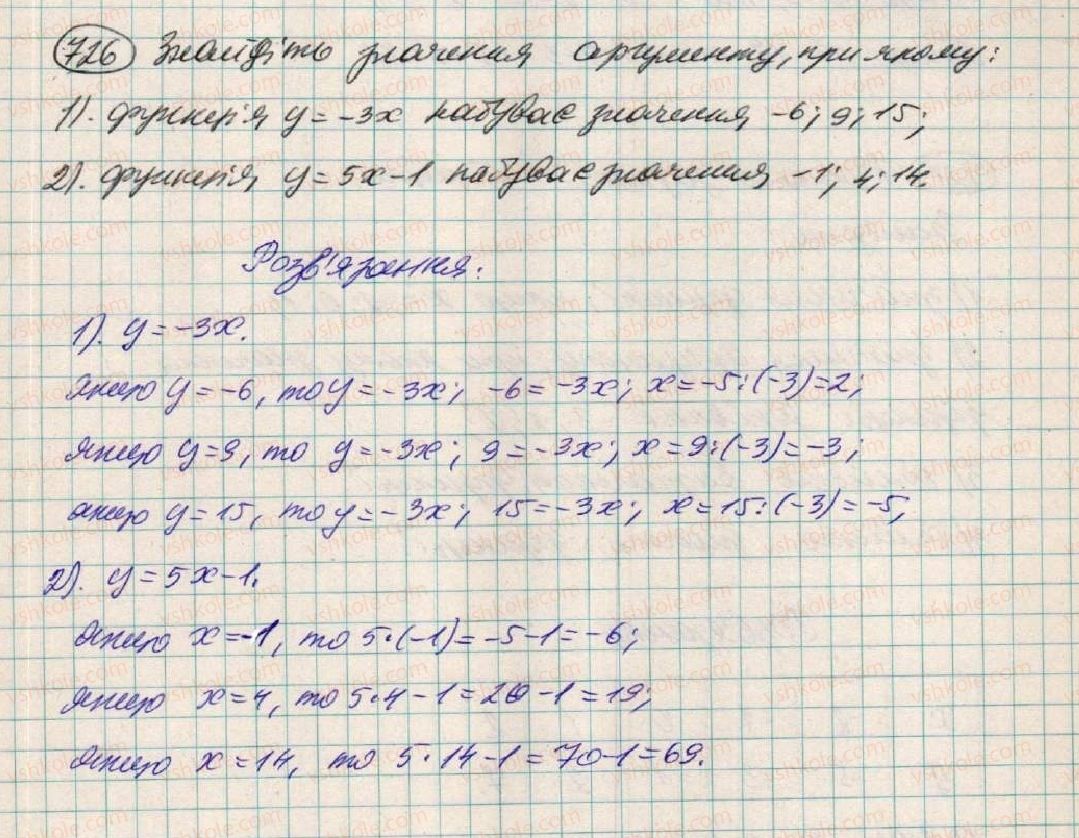 726 Знайдіть значення аргументу, при якому:
1). функція y = -3x набуває значення -6; 9; 15;
2). функція y = 5x-1 набуває значення -1; 4; 14.
Розв'язання:
1). y = -3x.
якщо y = -6, то y = -3x; -6 = -3x; x = -5:(-3) = 2;
якщо y = 9, то y = -3x; 9 = -3x; x = 9:(-3) = -3;
якщо y = 15, то y = -3x; 15 = -3x; x = 15:(-3) = -5;
2). y = 5x-1.
якщо x = -1, то 5·(-1) = -5-1 = -6;
якщо x = 4, то 5·4-1 = 20-1 = 19;
якщо x = 14, то 5·14-1 = 70-1 = 69.